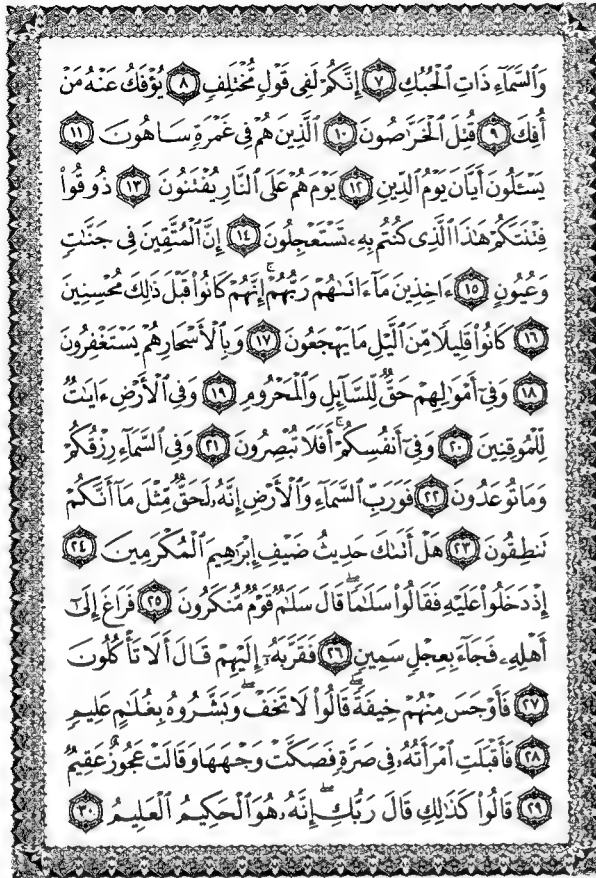 وَٱلسَّمَآءِ ذَاتِ ٱلْحُبُكِ ٧ إِنَّكُمْ لَفِى قَوْلٍ مُّخْتَلِفٍ ٨ يُؤْفَكُ عَنْهُ مَنْ
أُفِكَ ٩ قُتِلَ ٱلْخَرَّٰصُونَ ١٠ ٱلَّذِينَ هُمْ فِى غَمْرَةٍ سَاهُونَ ١١
يَسْـَٔلُونَ أَيَّانَ يَوْمُ ٱلدِّينِ ١٢ يَوْمَ هُمْ عَلَى ٱلنَّارِ يُفْتَنُونَ ١٣ ذُوقُوا۟
فِتْنَتَكُمْ هَٰذَا ٱلَّذِى كُنتُم بِهِۦ تَسْتَعْجِلُونَ ١٤ إِنَّ ٱلْمُتَّقِينَ فِى جَنَّٰتٍ
وَعُيُونٍ ١٥ ءَاخِذِينَ مَآ ءَاتَىٰهُمْ رَبُّهُمْ ۚ إِنَّهُمْ كَانُوا۟ قَبْلَ ذَٰلِكَ مُحْسِنِينَ
١٦ كَانُوا۟ قَلِيلًا مِّنَ ٱلَّيْلِ مَا يَهْجَعُونَ ١٧ وَبِٱلْأَسْحَارِ هُمْ يَسْتَغْفِرُونَ
١٨ وَفِىٓ أَمْوَٰلِهِمْ حَقٌّ لِّلسَّآئِلِ وَٱلْمَحْرُومِ ١٩ وَفِى ٱلْأَرْضِ ءَايَٰتٌ
لِّلْمُوقِنِينَ ٢٠ وَفِىٓ أَنفُسِكُمْ ۚ أَفَلَا تُبْصِرُونَ ٢١ وَفِى ٱلسَّمَآءِ رِزْقُكُمْ
وَمَا تُوعَدُونَ ٢٢ فَوَرَبِّ ٱلسَّمَآءِ وَٱلْأَرْضِ إِنَّهُۥ لَحَقٌّ مِّثْلَ مَآ أَنَّكُمْ
تَنطِقُونَ ٢٣ هَلْ أَتَىٰكَ حَدِيثُ ضَيْفِ إِبْرَٰهِيمَ ٱلْمُكْرَمِينَ ٢٤
إِذْ دَخَلُوا۟ عَلَيْهِ فَقَالُوا۟ سَلَٰمًا ۖ قَالَ سَلَٰمٌ قَوْمٌ مُّنكَرُونَ ٢٥ فَرَاغَ إِلَىٰٓ
أَهْلِهِۦ فَجَآءَ بِعِجْلٍ سَمِينٍ ٢٦ فَقَرَّبَهُۥٓ إِلَيْهِمْ قَالَ أَلَا تَأْكُلُونَ
٢٧ فَأَوْجَسَ مِنْهُمْ خِيفَةً ۖ قَالُوا۟ لَا تَخَفْ ۖ وَبَشَّرُوهُ بِغُلَٰمٍ عَلِيمٍ
٢٨ فَأَقْبَلَتِ ٱمْرَأَتُهُۥ فِى صَرَّةٍ فَصَكَّتْ وَجْهَهَا وَقَالَتْ عَجُوزٌ عَقِيمٌ
٢٩ قَالُوا۟ كَذَٰلِكِ قَالَ رَبُّكِ ۖ إِنَّهُۥ هُوَ ٱلْحَكِيمُ ٱلْعَلِيمُ ٣٠